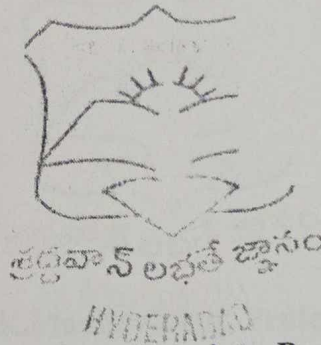 శ్రద్ధవాన్ లభతే జ్ఞానం
HYDERABAD